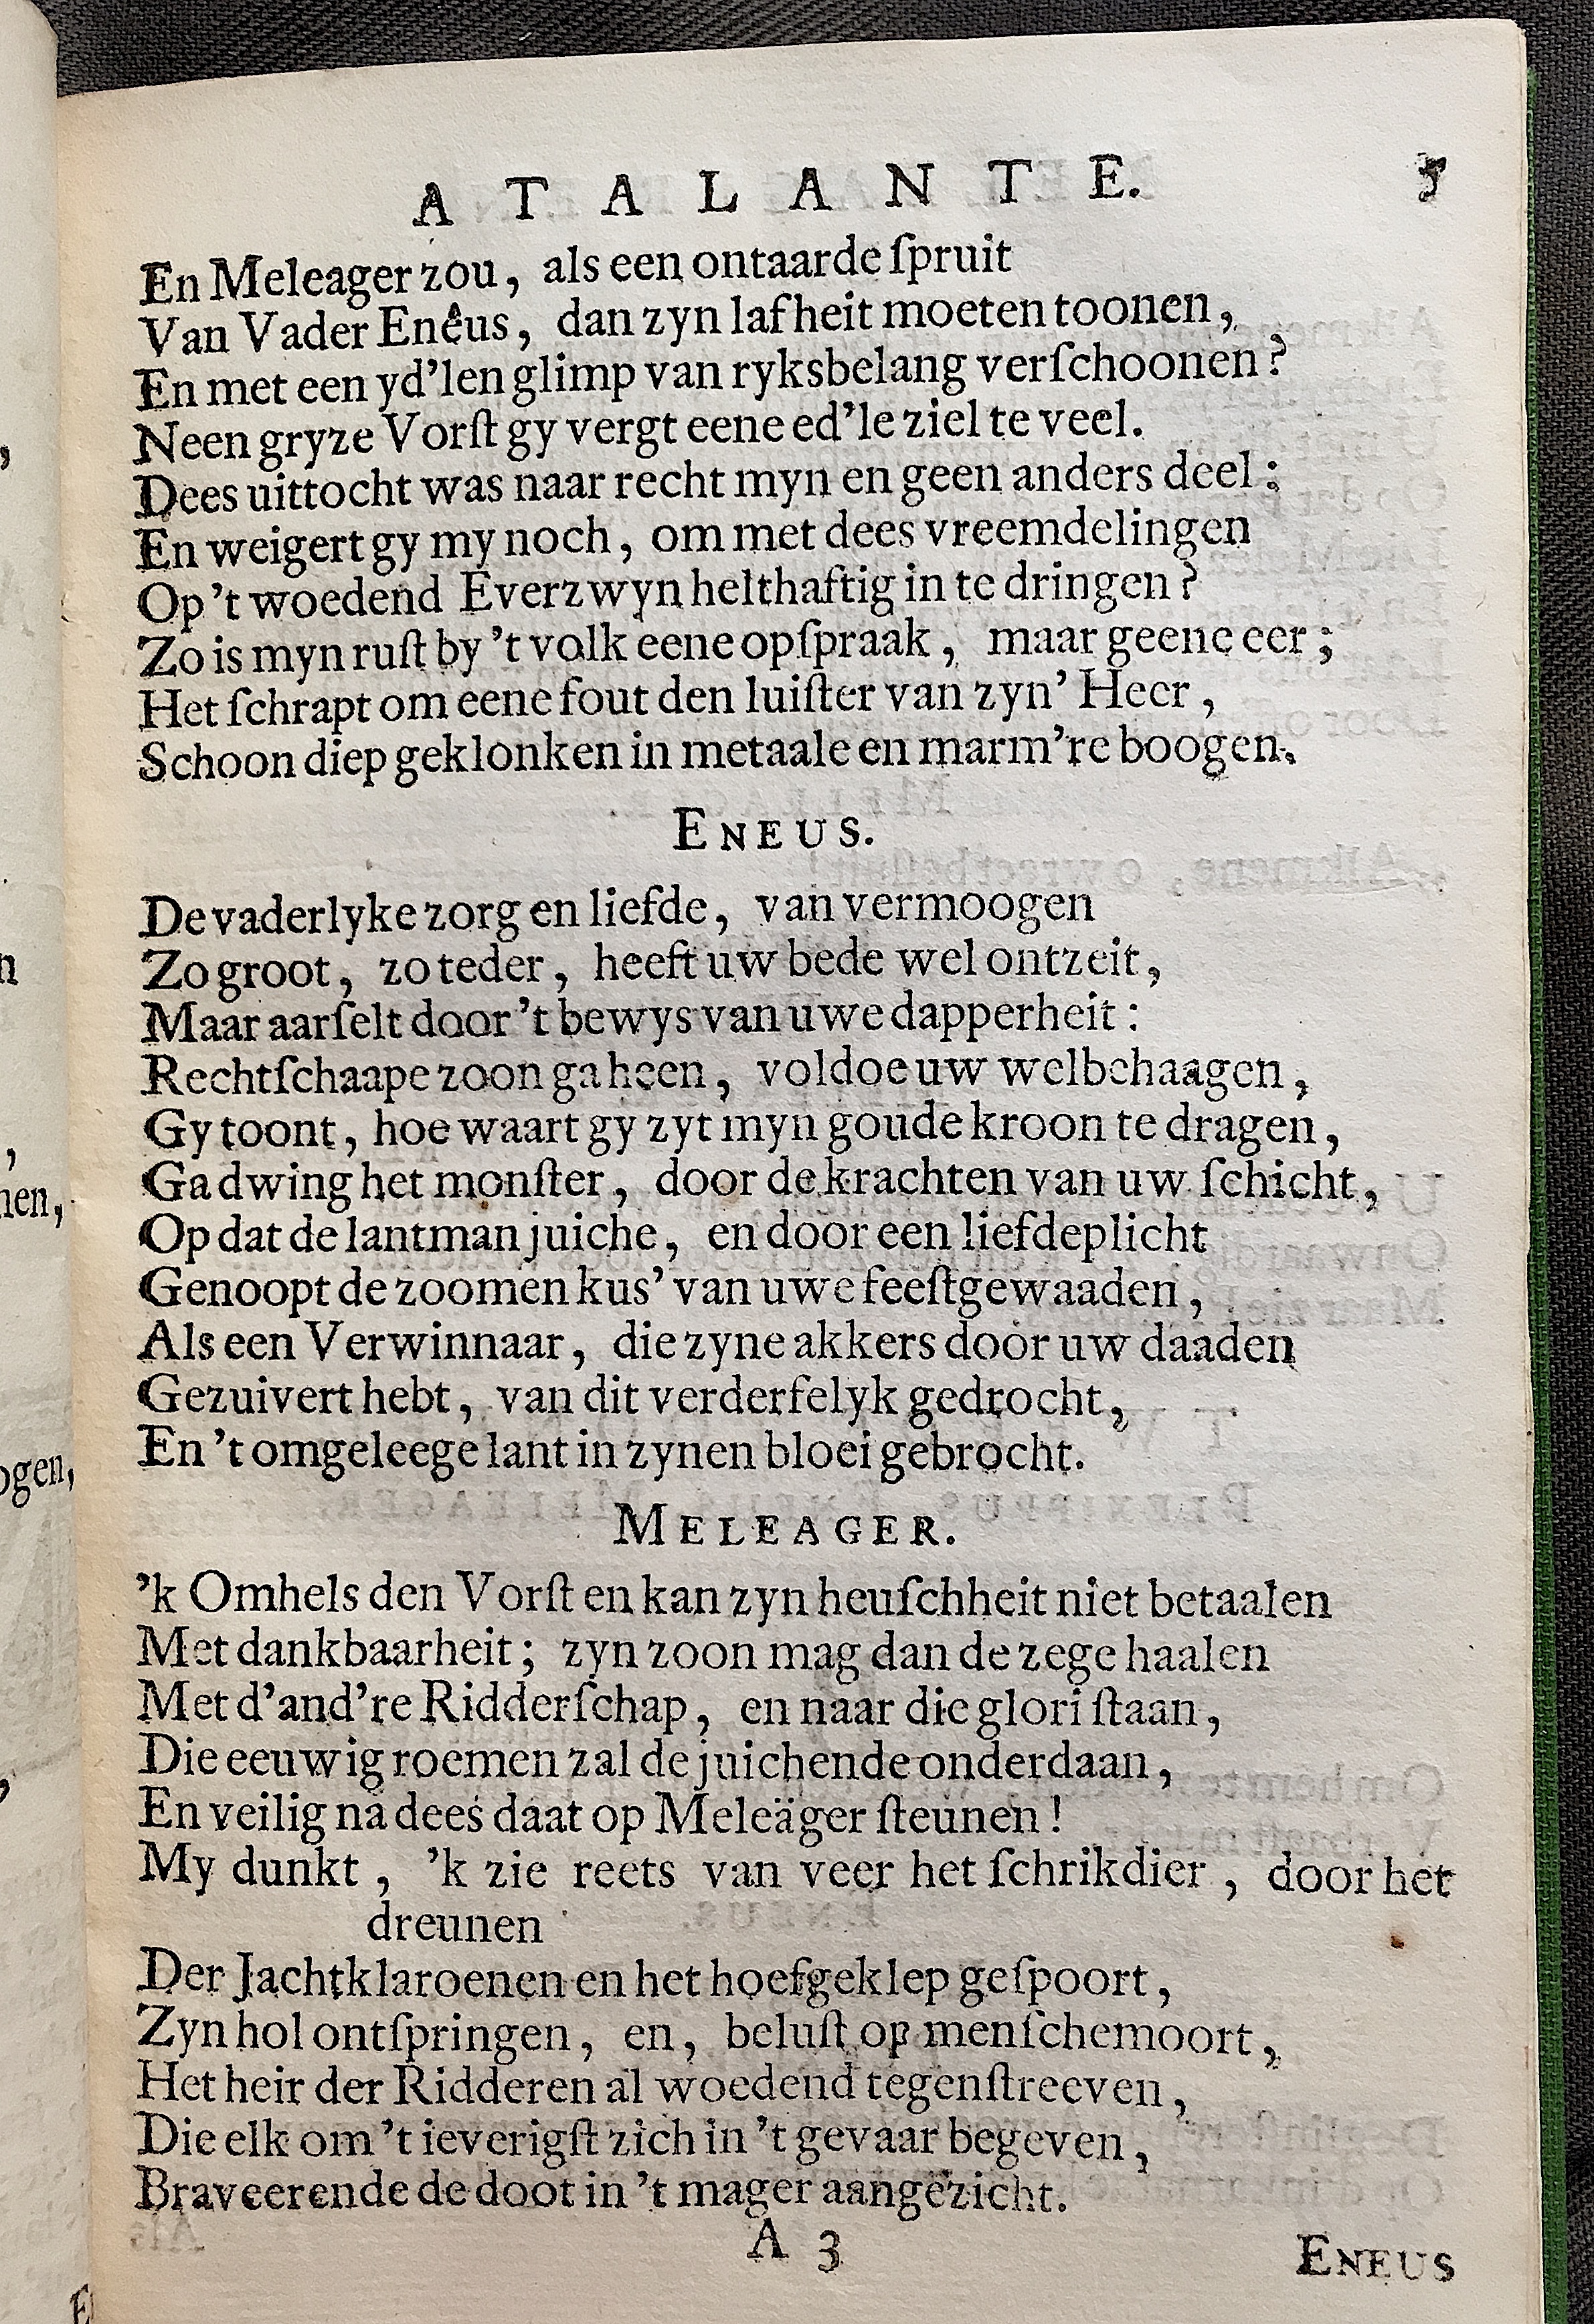 ATALANTE. 5
En Meleager zou, als een ontaarde ſpruit
Van Vader Enêus, dan zyn lafheit moeten toonen,
En met een yd'len glimp van ryksbelang verſchoonen?
Neen gryze Vorſt gy vergt eene ed'le ziel te veel.
Dees uittocht was naar recht myn en geen anders deel:
En weigert gy my noch, om met dees vreemdelingen
Op 't woedend Everzwyn helthaftig in te dringen?
Zo is myn ruſt by 't volk eene opſpraak, maar geene eer;
Het ſchrapt om eene fout den luiſter van zyn' Heer,
Schoon diep geklonken in metaale en marm're boogen.
ENEUS.
De vaderlyke zorg en liefde, van vermoogen
Zo groot, zo teder, heeft uw bede wel ontzeit,
Maar aarſelt door 't bewys van uwe dapperheit:
Rechtſchaape zoon ga heen, voldoe uw welbehaagen,
Gy toont, hoe waart gy zyt myn goude kroon te dragen,
Ga dwing het monſter, door de krachten van uw ſchicht,
Op dat de lantman juiche, en door een liefdeplicht
Genoopt de zoomen kus' van uwe feeſtgewaaden,
Als een Verwinnaar, die zyne akkers door uw daaden
Gezuivert hebt, van dit verderfelyk gedrocht,
En 't omgeleege lant in zynen bloei gebrocht.
MELEAGER.
'k Omhels den Vorſt en kan zyn heuſchheit niet betaalen
Met dankbaarheit; zyn zoon mag dan de zege haalen
Met d'and're Ridderſchap, en naar die glori ſtaan,
Die eeuwig roemen zal de juichende onderdaan,
En veilig na dees daat op Meleäger ſteunen!
My dunkt, 'k zie reets van veer het ſchrikdier, door het
dreunen
Der Jachtklaroenen en het hoefgeklep geſpoort,
Zyn hol ontſpringen, en, beluſt op menſchemoort,
Het heir der Ridderen al woedend tegenſtreeven,
Die elk om 't ieverigſt zich in 't gevaar begeven,
Braveerende de doot in 't mager aangezicht.
A 3 ENEUS